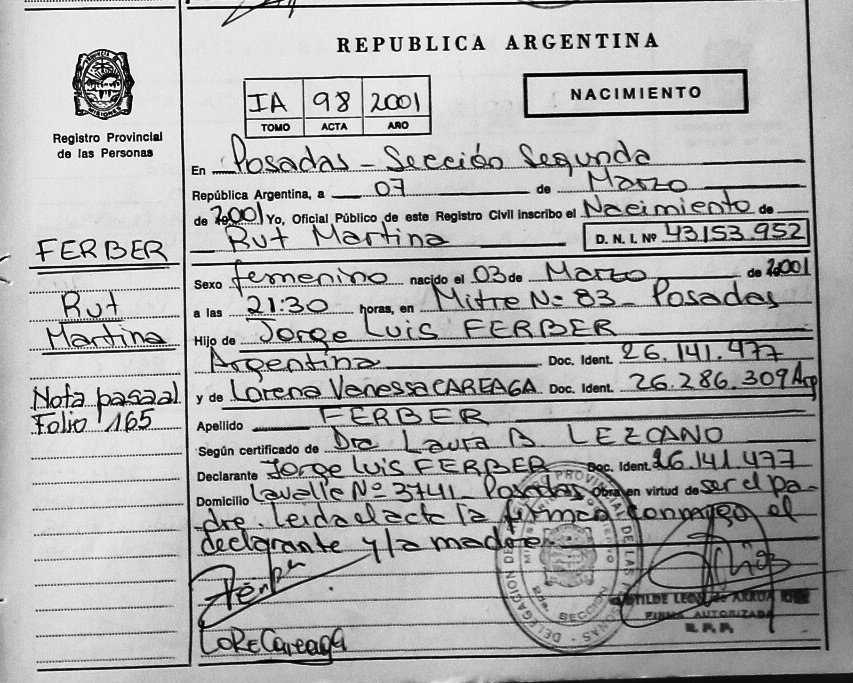 REPUBLICA ARGENTINA
Registro Provincial
de las Personas
IA 98 2001
TOMO ACTA AÑO
NACIMIENTO
En Posadas - Sección Segunda
República Argentina, a 07 de Marzo
de 2001 Yo, Oficial Público de este Registro Civil inscribo el Nacimiento de
Rut Martina D. N. I. Nº 43153.952
Sexo femenino nacido el 03 de Marzo de 2001
a las 21:30 horas, en Mitre Nº 83 - Posadas
Hijo de Jorge Luis FERBER
Argentina Doc. Ident. 26.141.477
y de Lorena Vanessa CAREAGA Doc. Ident. 26.286.309 Arg
Apellido FERBER
Según certificado de Dra Laura B LEZCANO
Declarante Jorge Luis FERBER Doc. Ident. 26.141.477
Domicilio Lavalle Nº 3741 - Posadas Obra en virtud de ser el pa-
dre. Leida el acta la firman conmigo el
declarante y la madre
FERBER
Rut
Martina
Nota pasa al
Folio 165
LoRe Careaga
FIRMA AUTORIZADA
R. P. P.